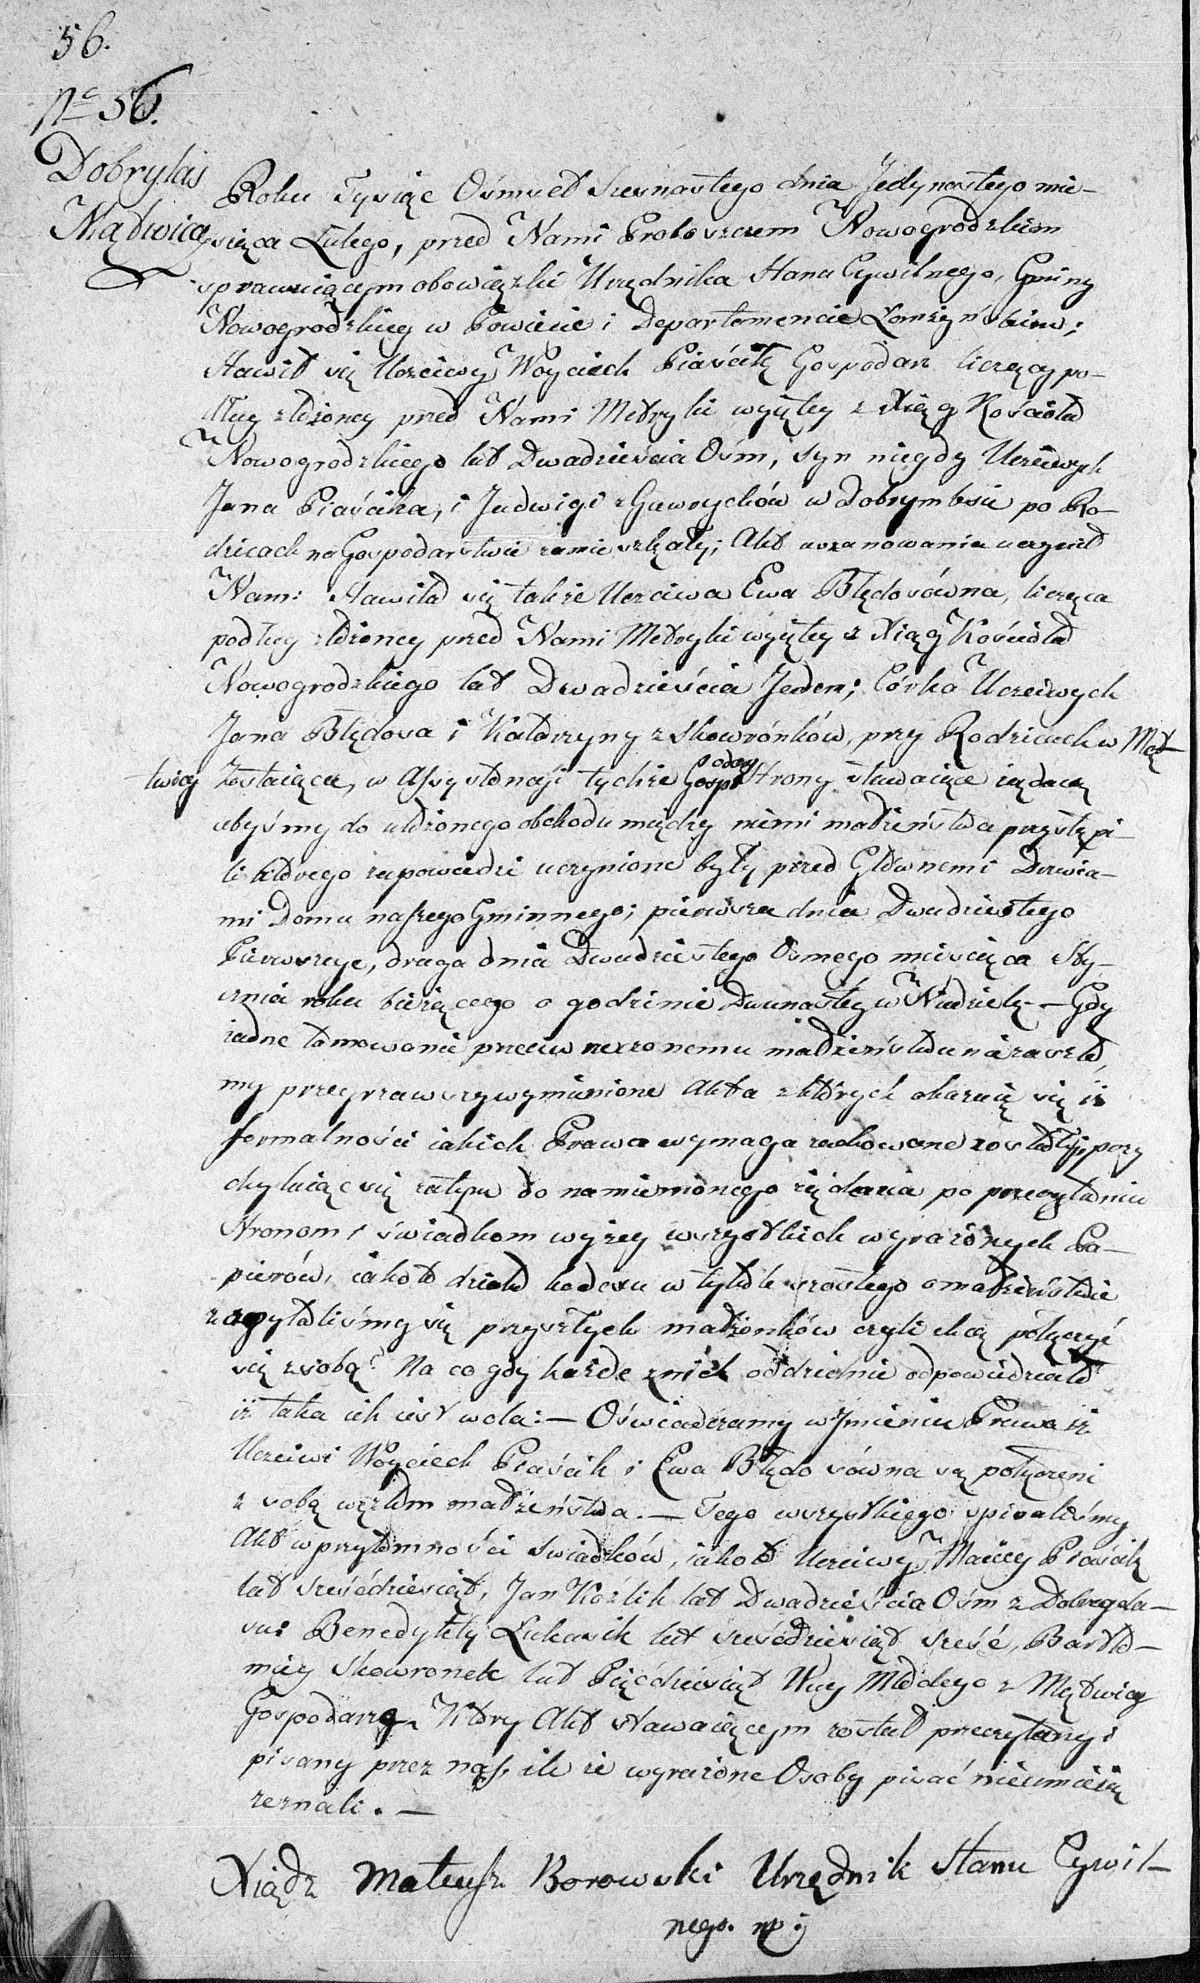 56.
No 56.
Dobrylas
Mątwica
Roku Tysiąc Ośmset Szesnastego dnia Jedynastego mie-
siąca Lutego, przed Nami Proboszczem Nowogrodzkim
sprawuiącym obowiązki Urzędnika Stanu Cywilnego, Gminy
Nowogrodzkiey w Powiecie i Departamencie Łomżyńskim;
Stawił się Uczciwy Woyciech Piaścik Gospodarz liczący po-
dług złożoney przed Nami Metryki wyiętey z Xiąg Kościoła
Nowogrodzkiego lat Dwadzieścia Ośm, syn niegdy Uczciwych
Jana Piaścika, i Jadwigi z Gawrychów w Dobrymlesie po Ro-
dzicach na Gospodarstwie zamieszkały; Akt uszanowania uczynił
Nam: Stawiła się także Uczciwa Ewa Błędosówna, licząca
podług złożoney przed Nami Metryki wyiętey z Xiąg Kościoła
Nowogrodzkiego lat Dwadzieścia Jeden; Córka Uczciwych
Jana Błędosa i Katarzyny z Skowrónków, przy Rodzicach w Mąt-
twicy Zostaiąca, w Assystencyi tychże Strony stawaiące żądaią
abyśmy do ułożonego obchodu między niemi małżeństwa przystąpi-
li którego zapowiedzi uczynione były przed Głównemi Drzwia-
mi Domu naszego Gminnego; pierwsza dnia Dwudziestego
Pierwszego, druga dnia Dwudziestego Osmego miesiąca Sty-
cznia roku bieżącego o godzinie Dwunastey w Niedzielę — Gdy
żadne tamowanie przeciw rzeczonemu małżeństwu niezaszło,
my przeyrzawszy wymienione Akta z których okazuię się iż
formalności iakich Prawo wymaga zachowane zostały przy
chylaiąc się zatym do namienionego żądania po przeczytaniu
Stronom i świadkom wyżey wszystkich wyrażonych Pa-
pierów, iakoto dział kodexu w tytule szóstego o małżeństwie
zapytaliśmy się przyszłych małżonków czyli chcą połączyć
się z sobą? Na co gdy każde z nich oddzielnie odpowiedziało
iż taka ich iest wola: — Oświadczamy w Imieniu Prawa iż
Uczciwi Woyciech Piaścik i Ewa Błędosówna są połączeni
z sobą węzłem małżeństwa. — Tego wszystkiego spisaliśmy
Akt w przytomności świadków, iakoto Uczciwy Maciey Piaścik
lat sześćdziesiąt, Jan Koźlik lat Dwadzieścia Ośm z Dobregola-
su: Benedykty Łukasik lat sześćdziesiąt sześć, Bartło-
miey Skowronek lat Pięćdziesiąt Wuy Młodego z Mątwicy
Gospodarze. Który Akt stawaiącym został przeczytany i
pisany przez nas, ile że wyrażone Osoby pisać nieumieią
zeznali. —
Xiądz Mateusz Borowski Urzędnik Stanu Cywil-
nego. mp: